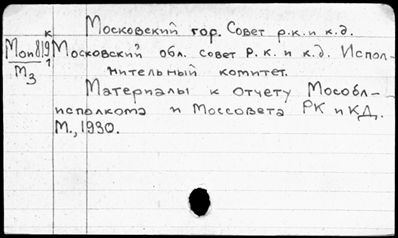 Московский гор. Совет р.к. и к.д.
Московский обл. совет р.к. и к.д. Испол-
нительный комитет.
Материалы к отчету Мособл-
исполкома и Моссовета РК и КД.
М., 1930.
к
Моп819
1
М3